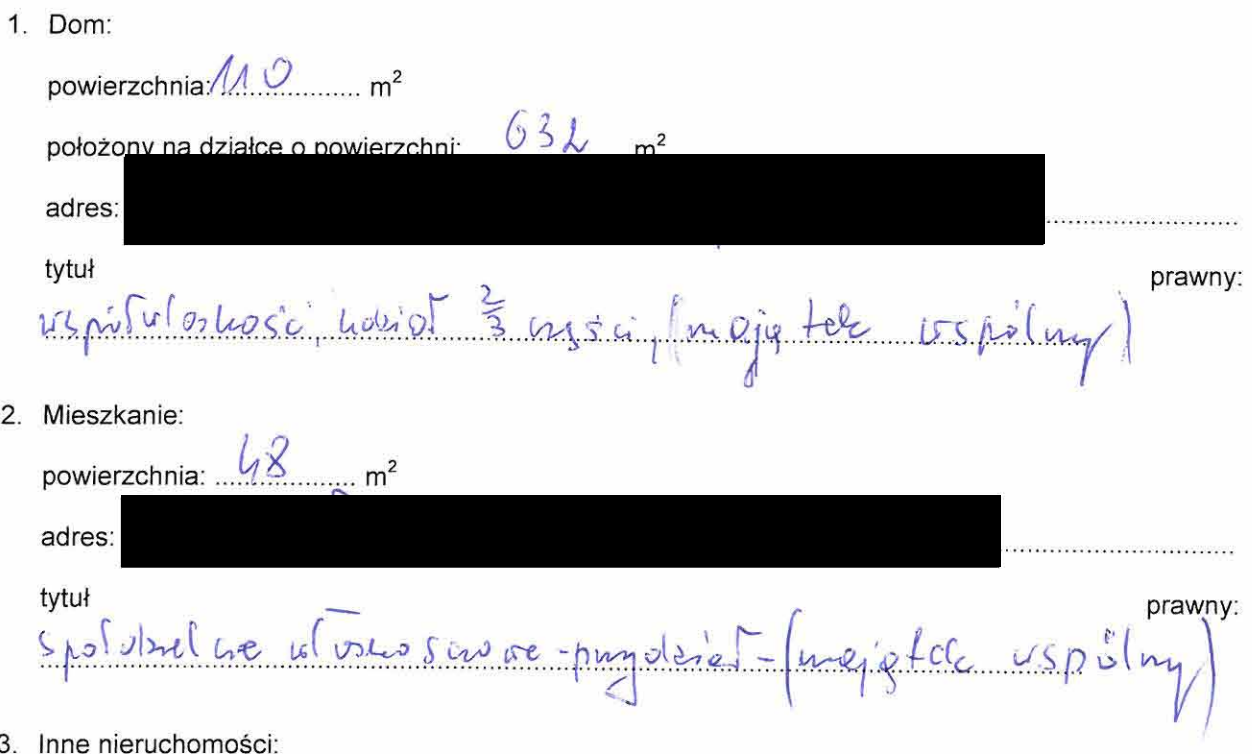 1. Dom:
powierzchnia: 110 m²
położony na działce o powierzchni: 632 m²
adres:
tytuł prawny:
współwłasność, udział 2/3 części, (majątek wspólny)
2. Mieszkanie:
powierzchnia: 48 m²
adres:
tytuł prawny:
spółdzielcze własnościowe - przydział - (majątek wspólny)
3. Inne nieruchomości: